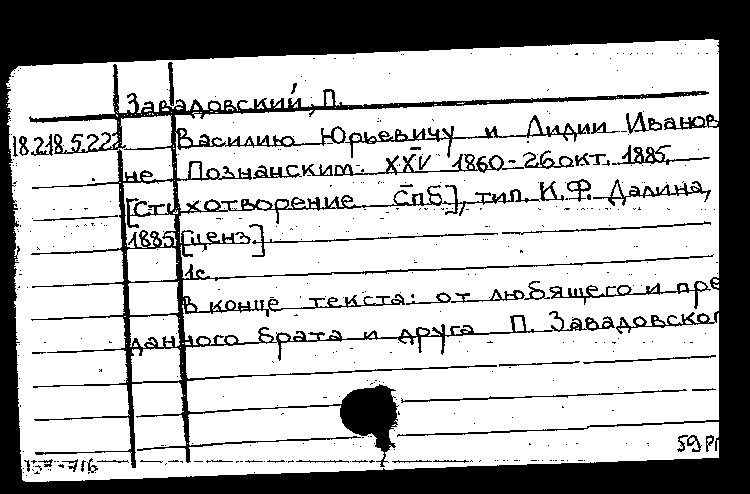 Завадовский, П.
18.218.5.222 Василию Юрьевичу и Лидии Иванов
не Познанским. XXV 1860-26 окт. 1885.
[Стихотворение. Спб], тип. К.Ф. Далина,
1885 [ценз.].
1с.
В конце текста: от любящего и пре
данного брата и друга П. Завадовског
59